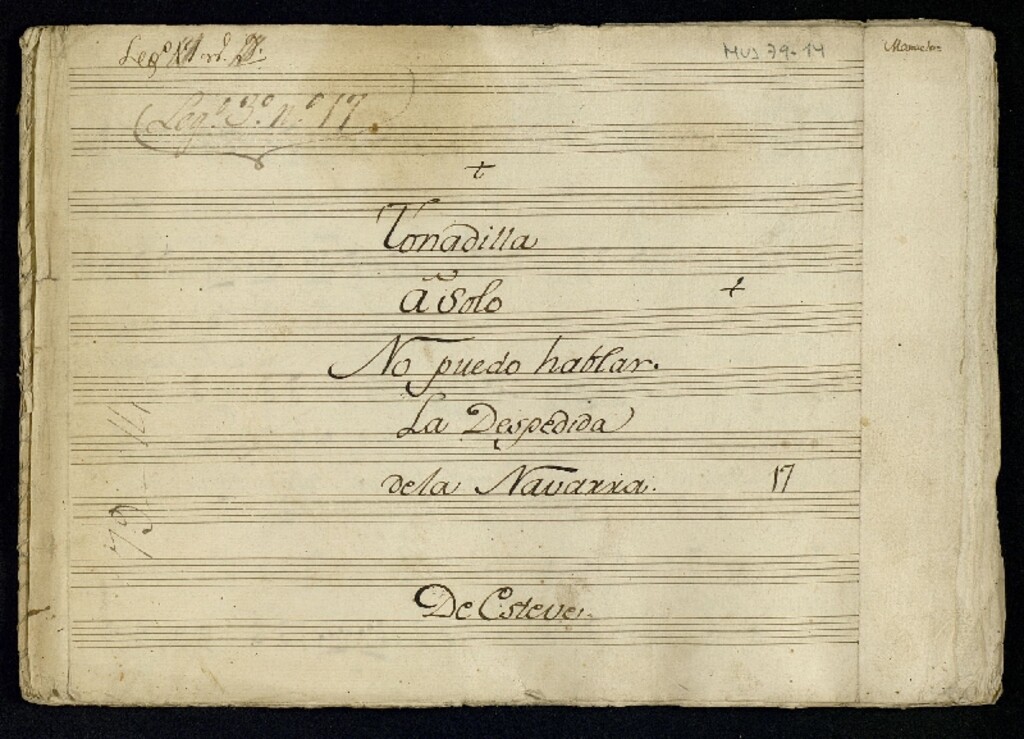 Leg.º
MUS 79-14
Leg.º 3.º n.º 17.
Tonadilla
â Solo
No puedo hablar.
La Despedida
dela Navarra.
17
79-14
De Esteve.